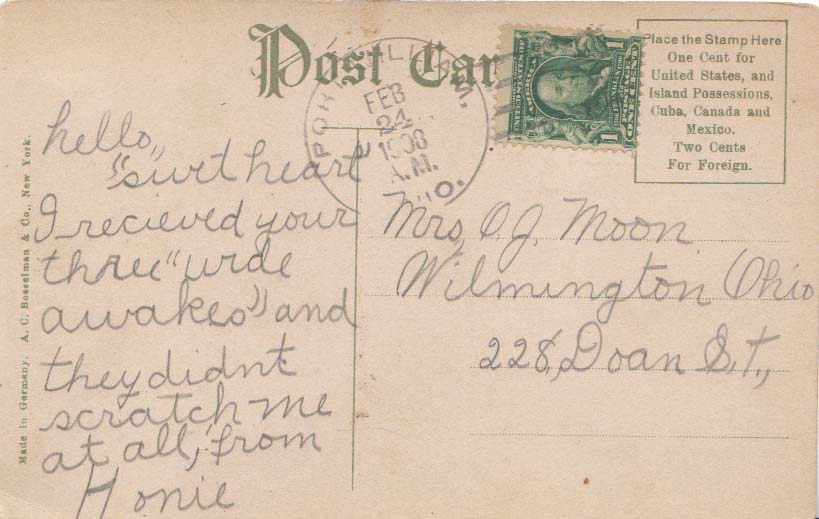 Post Car
Place the Stamp Here
One Cent for
United States, and
Island Possessions,
Cuba, Canada and
Mexico.
Two Cents
For Foreign.
FEB
24
1908
A.M.
O.
hello,
"swt heart"
I recieved your
three "wide
awakes" and
they didnt
scratch me
at all, from
Honie
Mrs, O.J. Moon
Wilmington Ohio
228, Doan St.,
Made in Germany. A. C. Bosselman & Co., New York.